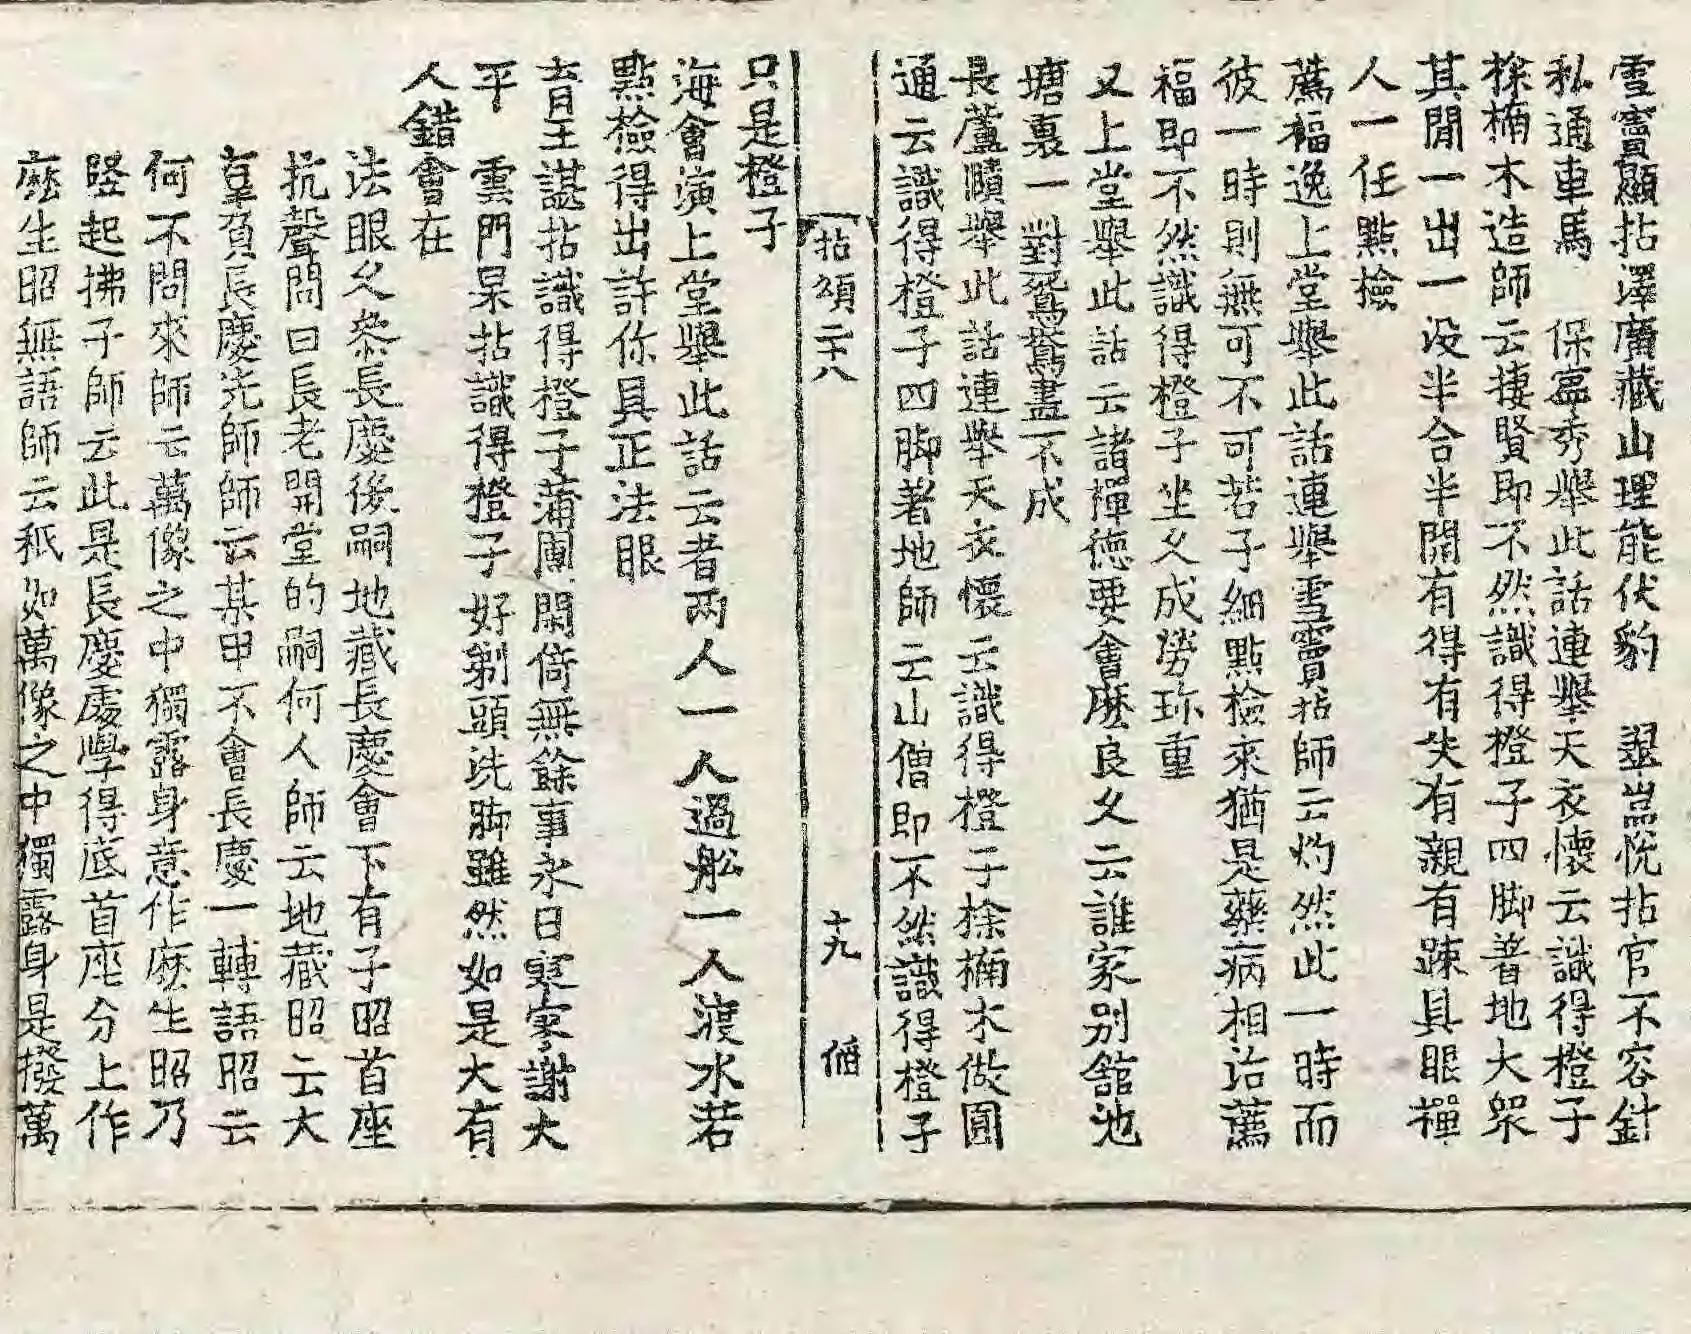 雪竇顯拈澤廣藏山理能伏豹　翠嵓悅拈官不容針
私通車馬　保寧秀舉此話連舉天衣懷云識得橙子
楺楠木造師云棲賢即不然識得橙子四脚著地大衆
其閒一出一没半合半開有得有失有親有踈具眼禪
人一任點撿
薦福逸上堂舉此話連舉雪竇拈師云灼然此一時而
彼一時則無可不可若子細點檢來猶是藥病相治薦
福即不然識得橙子坐久成勞珎重
又上堂舉此話云諸禪德要會麽良久云誰家別舘池
塘裏一對鴛鴦畫不成
長蘆賾舉此話連舉天衣懷云識得橙子捈楠木做圓
通云識得橙子四脚著地師云山僧即不然識得橙子
拈頌二十八　十九　脩
只是橙子
海會演上堂舉此話云者兩人一人過舩一人渡水若
點檢得出許你具正法眼
育王諶拈識得橙子蒲團閑倚無餘事永日寥寥謝大
平　雲門杲拈識得橙子好剃頭洗脚雖然如是大有
人錯會在
法眼久叅長慶後嗣地藏長慶會下有子昭首座
抗聲問曰長老開堂的嗣何人師云地藏昭云大
辜負長慶先師師云某甲不會長慶一轉語昭云
何不問來師云萬像之中獨露身意作麽生昭乃
竪起拂子師云此是長慶處學得底首座分上作
麽生昭無語師云秖如萬像之中獨露身是撥萬